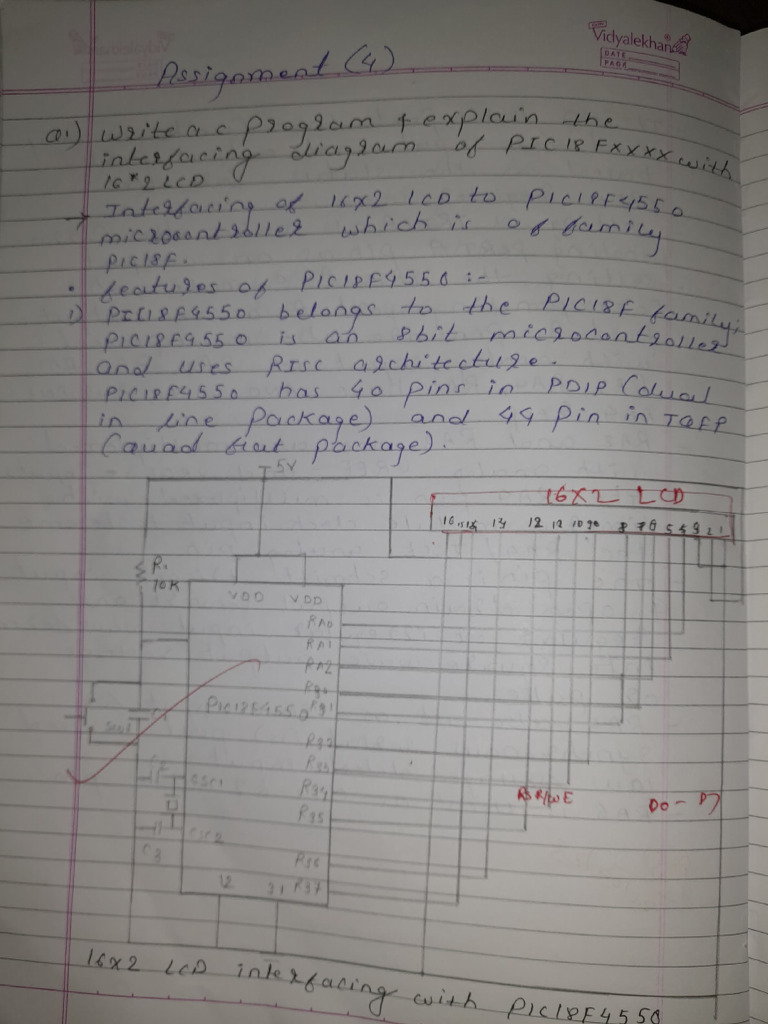 Vidyalekhan
DATE
PAGE
Assignment (4)
Q1) Write a c program & explain the
interfacing diagram of PIC18FXXXX with
16*2 LCD
→ Interfacing of 16x2 LCD to PIC18F4550
microcontroller which is of family
PIC18F.
• features of PIC18F4550 :-
1) PIC18F4550 belongs to the PIC18F family;
PIC18F4550 is an 8bit microcontroller
and uses RISC architecture.
PIC18F4550 has 40 pins in PDIP (dual
in line package) and 44 pin in TQFP
(quad flat package).
5V
16X2 LCD
16 15 14 13 12 11 10 9 8 7 6 5 4 3 2 1
R1
10K
VDD VDD
RA0
RA1
RA2
RB0
PIC18F4550 RB1
RB2
RB3
OSC1
RB4
RS R/W E
D0 - D7
RB5
OSC2
C3
RB6
12 31 RB7
16x2 LCD interfacing with PIC18F4550